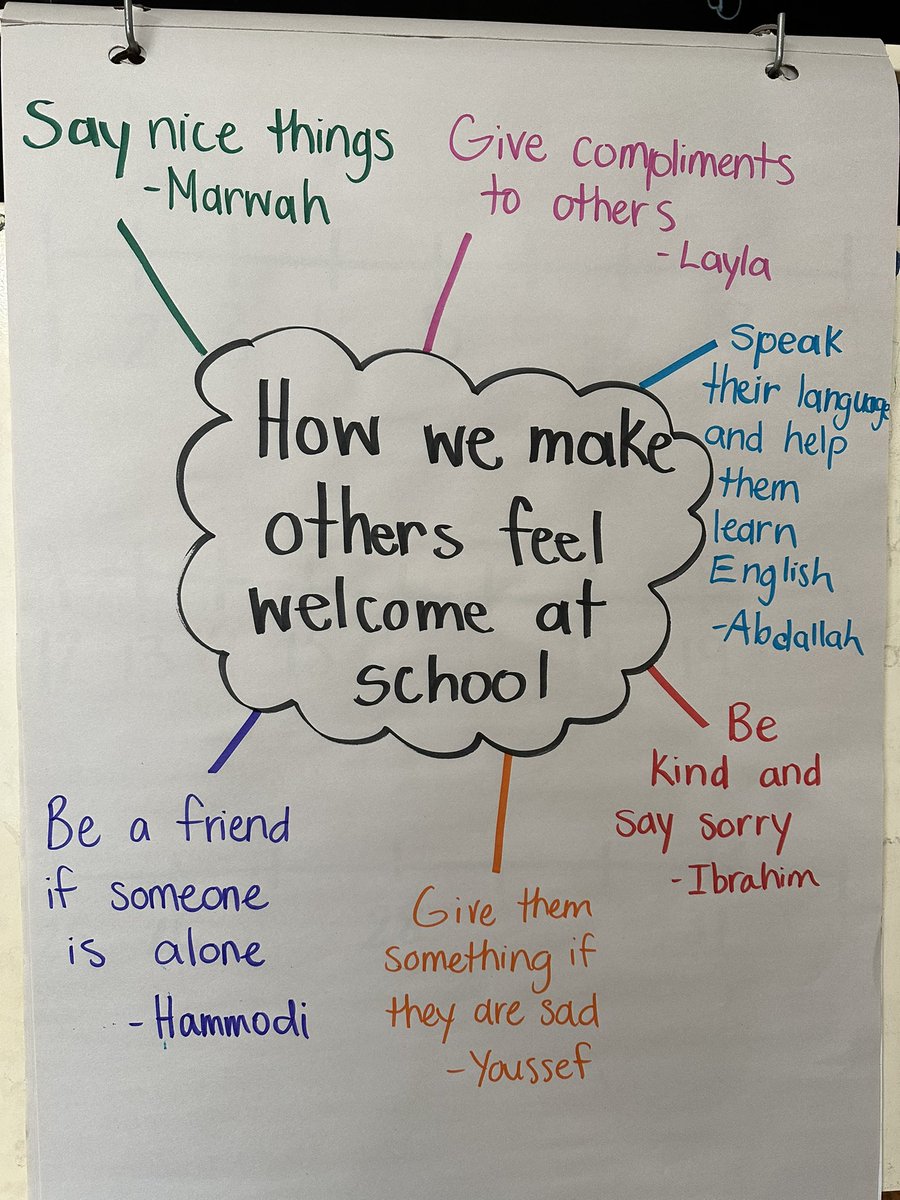 Say nice things
-Marwah
Give compliments
to others
-Layla
How we make
others feel
welcome at
school
Speak
their language
and help
them
learn
English
-Abdallah
Be
kind and
say sorry
-Ibrahim
Give them
something if
they are sad
-Youssef
Be a friend
if someone
is alone
-Hammodi